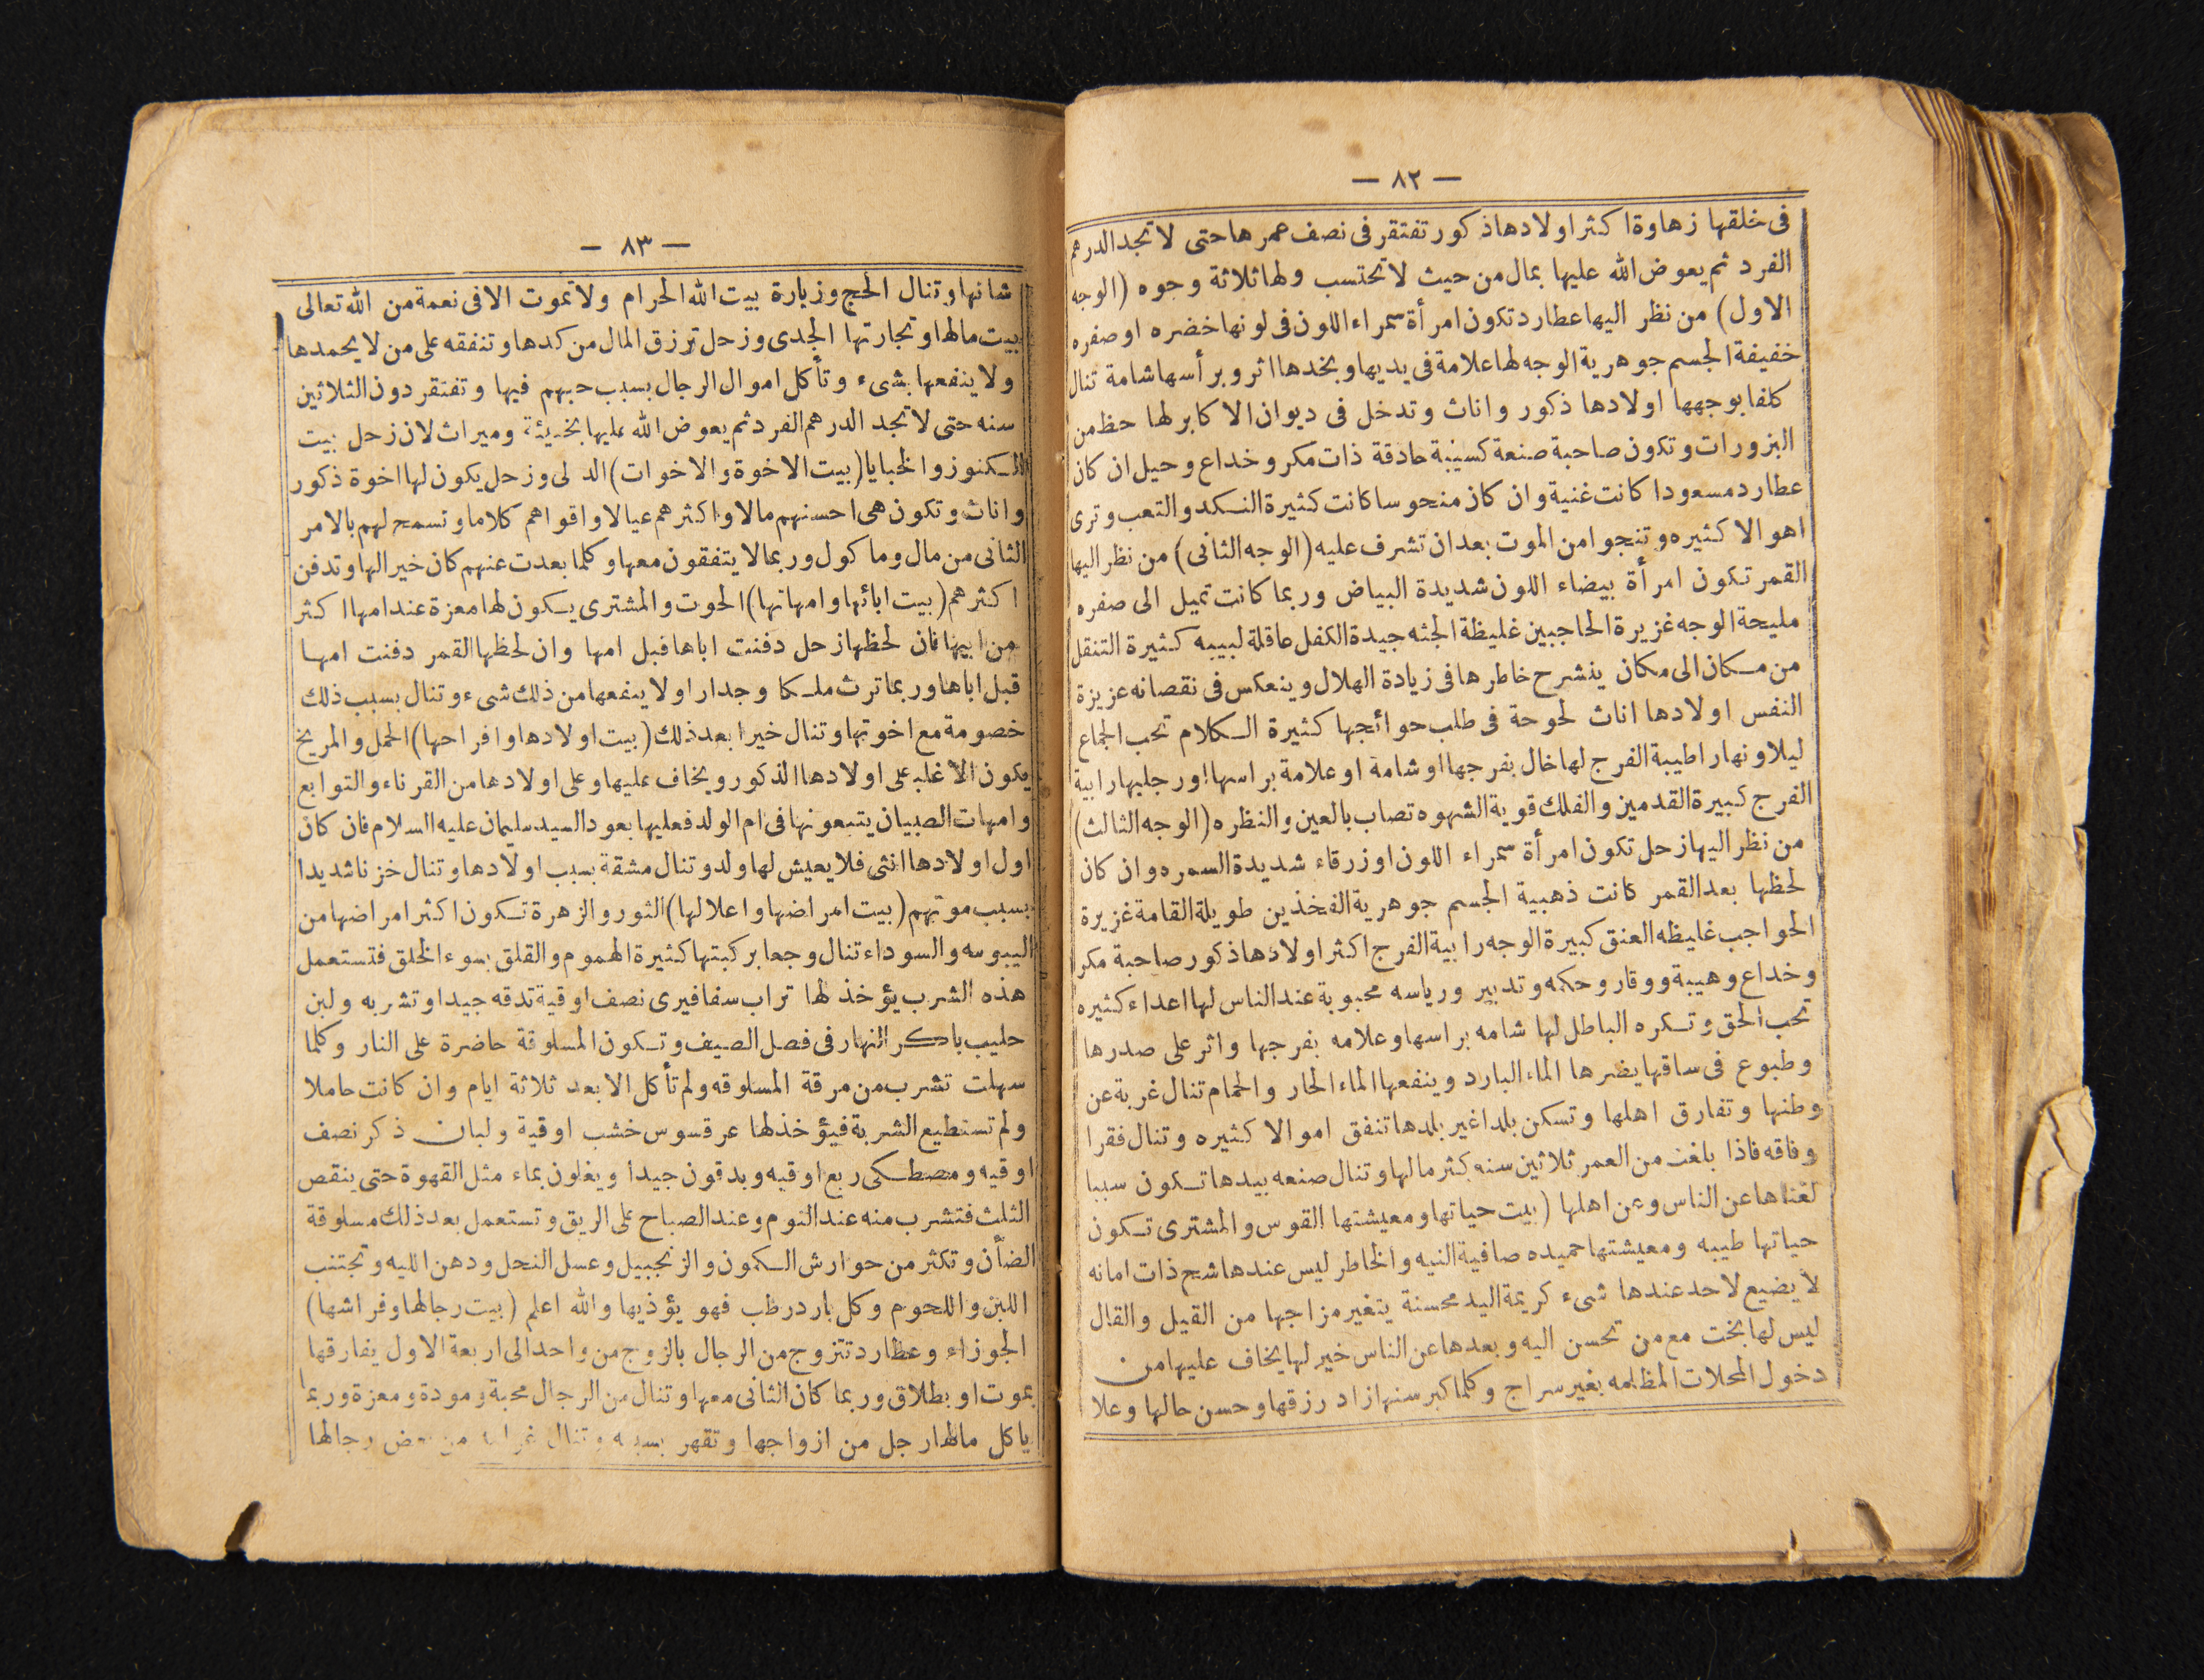 — ٨٢ —
فى خلقها زهاوة اكثر اولادها ذكور تفتقر فى نصف عمرها حتى لا تجد الدرهم
الفرد ثم يعوض الله عليها بمال من حيث لا تحتسب ولها ثلاثة وجوه (الوجه
الاول) من نظر اليها عطارد تكون امرأة سمراء اللون فى لونها خضره او صفره
خفيفة الجسم جوهرية الوجه لها علامة فى يديها وبخدها اثر وبرأسها شامة تنال
كلفا بوجهها اولادها ذكور واناث وتدخل فى ديوان الاكابر لها حظ من
البزورات وتكون صاحبة صنعة كسيبة حادقة ذات مكر وخداع وحيل ان كان
عطارد مسعودا كانت غنية وان كان منحوسا كانت كثيرة النكد والتعب وترى
اهوالا كثيره وتنجوا من الموت بعد ان تشرف عليه (الوجه الثانى) من نظر اليها
القمر تكون امرأة بيضاء اللون شديدة البياض وربما كانت تميل الى صفره
مليحة الوجه غزيرة الحاجبين غليظة الجثه جيدة الكفل عاقلة لبيبه كثيرة التنقل
من مكان الى مكان ينشرح خاطرها فى زيادة الهلال وينعكس فى نقصانه عزيزة
النفس اولادها اناث لحوحة فى طلب حوائجها كثيرة الكلام تحب الجماع
ليلا ونهارا طيبة الفرج لها خال بفرجها او شامة او علامة براسها او رجليها رابية
الفرج كبيرة القدمين والفلك قوية الشهوه تصاب بالعين والنظره (الوجه الثالث)
من نظر اليها زحل تكون امرأة سمراء اللون او زرقاء شديدة السمره وان كان
لحظها بعد القمر كانت ذهبية الجسم جوهرية الفخذين طويلة القامة غزيرة
الحواجب غليظه العنق كبيرة الوجه رابية الفرج اكثر اولادها ذكور صاحبة مكر
وخداع وهيبة ووقار وحكمه وتدبير ورياسه محبوبة عند الناس لها اعداء كثيره
تحب الحق وتكره الباطل لها شامه براسها وعلامه بفرجها واثر على صدرها
وطبوع فى ساقها يضرها الماء البارد وينفعها الماء الحار والحمام تنال غربة عن
وطنها وتفارق اهلها وتسكن بلدا غير بلدها تنفق اموالا كثيره وتنال فقرا
وفاقه فاذا بلغت من العمر ثلاثين سنه كثر مالها وتنال صنعه بيدها تكون سببا
لغناها عن الناس وعن اهلها (بيت حياتها ومعيشتها القوس والمشترى تكون
حياتها طيبه ومعيشتها حميده صافية النيه والخاطر ليس عندها شح ذات امانه
لا يضيع لاحد عندها شىء كريمة اليد محسنة يتغير مزاجها من القيل والقال
ليس لها بخت مع من تحسن اليه وبعدها عن الناس خير لها يخاف عليها من
دخول المحلات المظلمه بغير سراج وكلما كبر سنها زاد رزقها وحسن حالها وعلا
— ٨٣ —
شانها وتنال الحج وزيارة بيت الله الحرام ولا تموت الا فى نعمة من الله تعالى
بيت مالها وتجارتها الجدى وزحل ترزق المال من كدها وتنفقه على من لا يحمدها
ولا ينفعها بشىء وتأكل اموال الرجال بسبب حبهم فيها وتفتقر دون الثلاثين
سنه حتى لا تجد الدرهم الفرد ثم يعوض الله عليها بخبيئة وميراث لان زحل بيت
الكنوز والخبايا (بيت الاخوة والاخوات) الدلى وزحل يكون لها اخوة ذكور
واناث وتكون هى احسنهم مالا واكثرهم عيالا واقواهم كلاما وتسمح لهم بالامر
الثانى من مال وماكول وربما لا يتفقون معها وكلما بعدت عنهم كان خيرا لها وتدفن
اكثرهم (بيت ابائها وامهاتها) الحوت والمشترى يكون لها معزة عند امها اكثر
من ابيها فان لحظها زحل دفنت اباها قبل امها وان لحظها القمر دفنت امها
قبل اباها وربما ترث ملكا وجدارا ولا ينفعها من ذلك شىء وتنال بسبب ذلك
خصومة مع اخوتها وتنال خيرا بعد ذلك (بيت اولادها وافراحها) الحمل والمريخ
يكون الاغلب على اولادها الذكور ويخاف عليها وعلى اولادها من القرناء والتوابع
وامهات الصبيان يتبعونها فى ام الولد فعليها بعود السيد سليمان عليه السلام فان كان
اول اولادها انثى فلا يعيش لها ولد وتنال مشقة بسبب اولادها وتنال خزنا شديدا
بسبب موتهم (بيت امراضها واعلالها) الثور والزهرة تكون اكثر امراضها من
اليبوسه والسوداء تنال وجعا بركبتها كثيرة الهموم والقلق بسوء الخلق فتستعمل
هذه الشرب يؤخذ لها تراب سفافيرى نصف اوقية تدقه جيدا وتشربه ولبن
حليب باكر النهار فى فصل الصيف وتكون المسلوقة حاضرة على النار وكلما
سهلت تشرب من مرقة المسلوقه ولم تأكل الا بعد ثلاثة ايام وان كانت حاملا
ولم تستطيع الشربة فيؤخذ لها عرقسوس خشب اوقية ولبان ذكر نصف
اوقيه ومصطكى ربع اوقيه ويدقون جيدا ويغلون بماء مثل القهوة حتى ينقص
الثلث فتشرب منه عند النوم وعند الصباح على الريق وتستعمل بعد ذلك مسلوقة
الضأن وتكثر من حوارش الكمون والزنجبيل وعسل النحل ودهن الليه وتجتنب
اللبن واللحوم وكل بارد رطب فهو يؤذيها والله اعلم (بيت رجالها وفراشها)
الجوزاء وعطارد تتزوج من الرجال بالزوج من واحد الى اربعة الاول يفارقها
بموت او بطلاق وربما كان الثانى معها وتنال من الرجال محبة ومودة ومعزة وربما
ياكل مالها رجل من ازواجها وتقهر بسببه وتنال من بعض رجالها